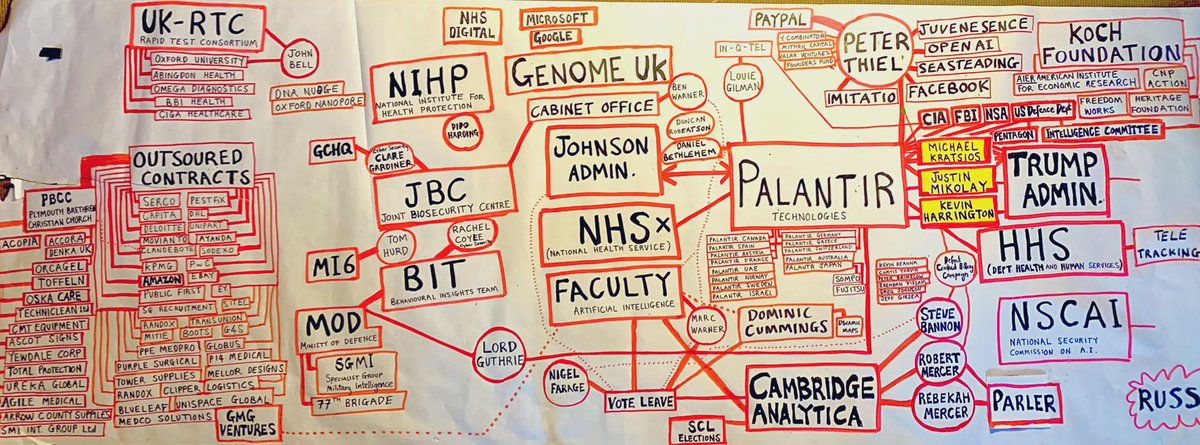 UK-RTC
RAPID TEST CONSORTIUM
OXFORD UNIVERSITY
ABINGDON HEALTH
OMEGA DIAGNOSTICS
BBI HEALTH
CIGA HEALTHCARE
JOHN
BELL
DNA NUDGE
OXFORD NANOPORE
NIHP
NATIONAL INSTITUTE FOR
HEALTH PROTECTION
DIDO
HARDING
NHS
DIGITAL
MICROSOFT
GOOGLE
GENOME UK
CABINET OFFICE
BEN
WARNER
DUNCAN
ROBERTSON
DANIEL
BETHLEHEM
JOHNSON
ADMIN.
IN-Q-TEL
LOUIE
GILMAN
PAYPAL
Y COMBINATOR
MITHRIL CAPITAL
VALAR VENTURES
FOUNDERS FUND
PETER
THIEL
IMITATIO
JUVENESENCE
OPEN AI
SEASTEADING
FACEBOOK
KOCH
FOUNDATION
AIER AMERICAN INSTITUTE
FOR ECONOMIC RESEARCH
CNP
ACTION
FREEDOM
WORKS
HERITAGE
FOUNDATION
CIA
FBI
NSA
US Defence Dept
PENTAGON
INTELLIGENCE COMMITTEE
MICHAEL
KRATSIOS
JUSTIN
MIKOLAY
KEVIN
HARRINGTON
TRUMP
ADMIN.
PALANTIR
TECHNOLOGIES
PALANTIR CANADA
PALANTIR SPAIN
PALANTIR AUSTRIA
PALANTIR FRANCE
PALANTIR UAE
PALANTIR NORWAY
PALANTIR SWEDEN
PALANTIR ISRAEL
PALANTIR GERMANY
PALANTIR GREECE
PALANTIR SWITZERLAND
PALANTIR AUSTRALIA
PALANTIR JAPAN
SOMPO
FUJITSU
HHS
(DEPT. HEALTH AND HUMAN SERVICES)
TELE
TRACKING
NSCAI
NATIONAL SECURITY
COMMISSION ON A.I.
KEVIN DEANNA
CURTIS YARVIN
PETER BRIMELOW
BRENDAN KISSAM
GREG JOHNSON
JEFF GIESEA
STEVE
BANNON
ROBERT
MERCER
REBEKAH
MERCER
PARLER
RUSS
GCHQ
Cyber Security
CLARE
GARDINER
JBC
JOINT BIOSECURITY CENTRE
TOM
HURD
RACHEL
COYEE
MI6
BIT
BEHAVIOURAL INSIGHTS TEAM
MOD
MINISTY OF DEFENCE
SGMI
SPECIALIST GROUP
Military Intelligence
77TH BRIGADE
LORD
GUTHRIE
NHSx
(NATIONAL HEALTH SERVICE)
FACULTY
ARTIFICIAL INTELLIGENCE
MARC
WARNER
DOMINIC
CUMMINGS
DYNAMIC
MAPS
NIGEL
FARAGE
VOTE LEAVE
CAMBRIDGE
ANALYTICA
SCL
ELECTIONS
OUTSOURED
CONTRACTS
SERCO
PESTFIX
CAPITA
DHL
DELOITTE
UNIPART
MOVIANTO
AYANDA
CLANDEBOYE
SODEXO
KPMG
PWC
AMAZON
EBAY
PUBLIC FIRST
EY
SG RECRUITMENT
SITEL
RANDOX
TRANSUNION
MITIE
BOOTS
G4S
PPE MEDPRO
GLOBUS
PURPLE SURGICAL
P14 MEDICAL
TOWER SUPPLIES
MELLOR DESIGNS
RANDOX
CLIPPER LOGISTICS
BLUELEAF
UNISPACE GLOBAL
MEDCO SOLUTIONS
GMG
VENTURES
PBCC
PLYMOUTH BRETHREN
CHRISTIAN CHURCH
ACOPIA
ACCORA
DENKA UK
ORCAGEL
TOFFELN
OSKA CARE
TECHNICLEAN Ltd
CMT EQUIPMENT
ASCOT SIGNS
YEWDALE CORP
TOTAL PROTECTION
EUREKA GLOBAL
AGILE MEDICAL
ARROW COUNTY SUPPLIES
SMI INT. GROUP Ltd